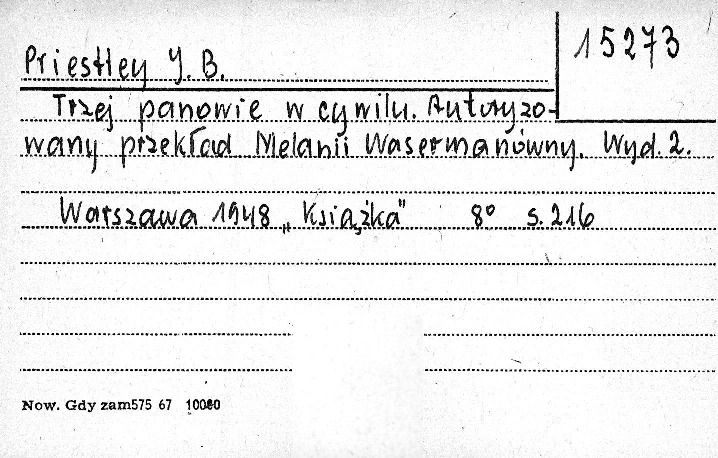 15273
Priestley J. B.
Trzej panowie w cywilu. Autoryzo-
wany przekład Melanii Wasermanówny. Wyd. 2.
Warszawa 1948 „Książka" 8° s. 216
Now. Gdy zam575 67 10000